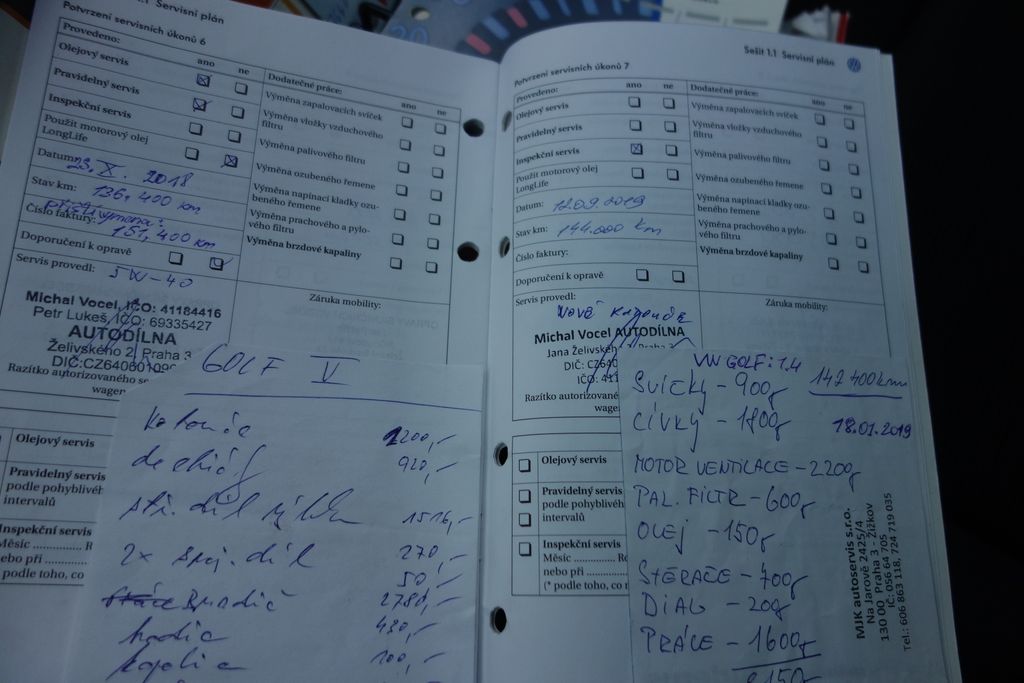 1.1 Servisní plán
Potvrzení servisních úkonů 6
Provedeno: ano ne
Olejový servis
Pravidelný servis
Inspekční servis
Použit motorový olej
LongLife
Datum: 23. X. 2018
Stav km: 136, 400 km
příští výmena:
Číslo faktury: 151, 400 km
Doporučení k opravě
Servis provedl: 5W-40
Michal Vocel, IČO: 41184416
Petr Lukeš, IČO: 69335427
AUTODÍLNA
Želivského 2, Praha 3
DIČ:CZ640601090
Razítko autorizovaného se
wagen
Dodatečné práce: ano ne
Výměna zapalovacích svíček
Výměna vložky vzduchového
filtru
Výměna palivového filtru
Výměna ozubeného řemene
Výměna napínací kladky ozu-
beného řemene
Výměna prachového a pylo-
vého filtru
Výměna brzdové kapaliny
Záruka mobility:
Olejový servis
Pravidelný servis
podle pohyblivéh
intervalů
Inspekční servis
Měsíc .............. R
nebo při
podle toho, co
GOLF V
1200,-
920,-
1516,-
2x spoj. díl 270,-
50,-
2780,-
430,-
100,-
Sešit 1.1 Servisní plán
Potvrzení servisních úkonů 7
Provedeno: ano ne
Olejový servis
Pravidelný servis
Inspekční servis
Použit motorový olej
LongLife
Datum: 12.09.2019
Stav km: 144.000 km
Číslo faktury:
Doporučení k opravě
Servis provedl:
Nová
Michal Vocel AUTODÍLNA
Jana Želivského Praha 3
DIČ: CZ640
IČO: 411
Razítko autorizované
wage
Dodatečné práce: ano ne
Výměna zapalovacích svíček
Výměna vložky vzduchového
filtru
Výměna palivového filtru
Výměna ozubeného řemene
Výměna napínací kladky ozu-
beného řemene
Výměna prachového a pylo-
vého filtru
Výměna brzdové kapaliny
Záruka mobility:
Olejový servis
Pravidelný servis
podle pohyblivéh
intervalů
Inspekční servis
Měsíc ................ Ro
nebo při
(* podle toho, co n
VW GOLF: 1.4
142 400 km
SVÍČKY - 900,-
CÍVKY - 1800,-
18.01.2019
MOTOR VENTILACE - 2200,-
PAL. FILTR - 600,-
OLEJ - 150,-
STĚRAČE - 700,-
DIAG - 200,-
PRÁCE - 1600,-
8150,-
MJK autoservis s.r.o.
Na Jarově 2425/4
130 00 Praha 3 - Žižkov
IČ: 056 64 705
Tel.: 606 863 118, 724 719 035